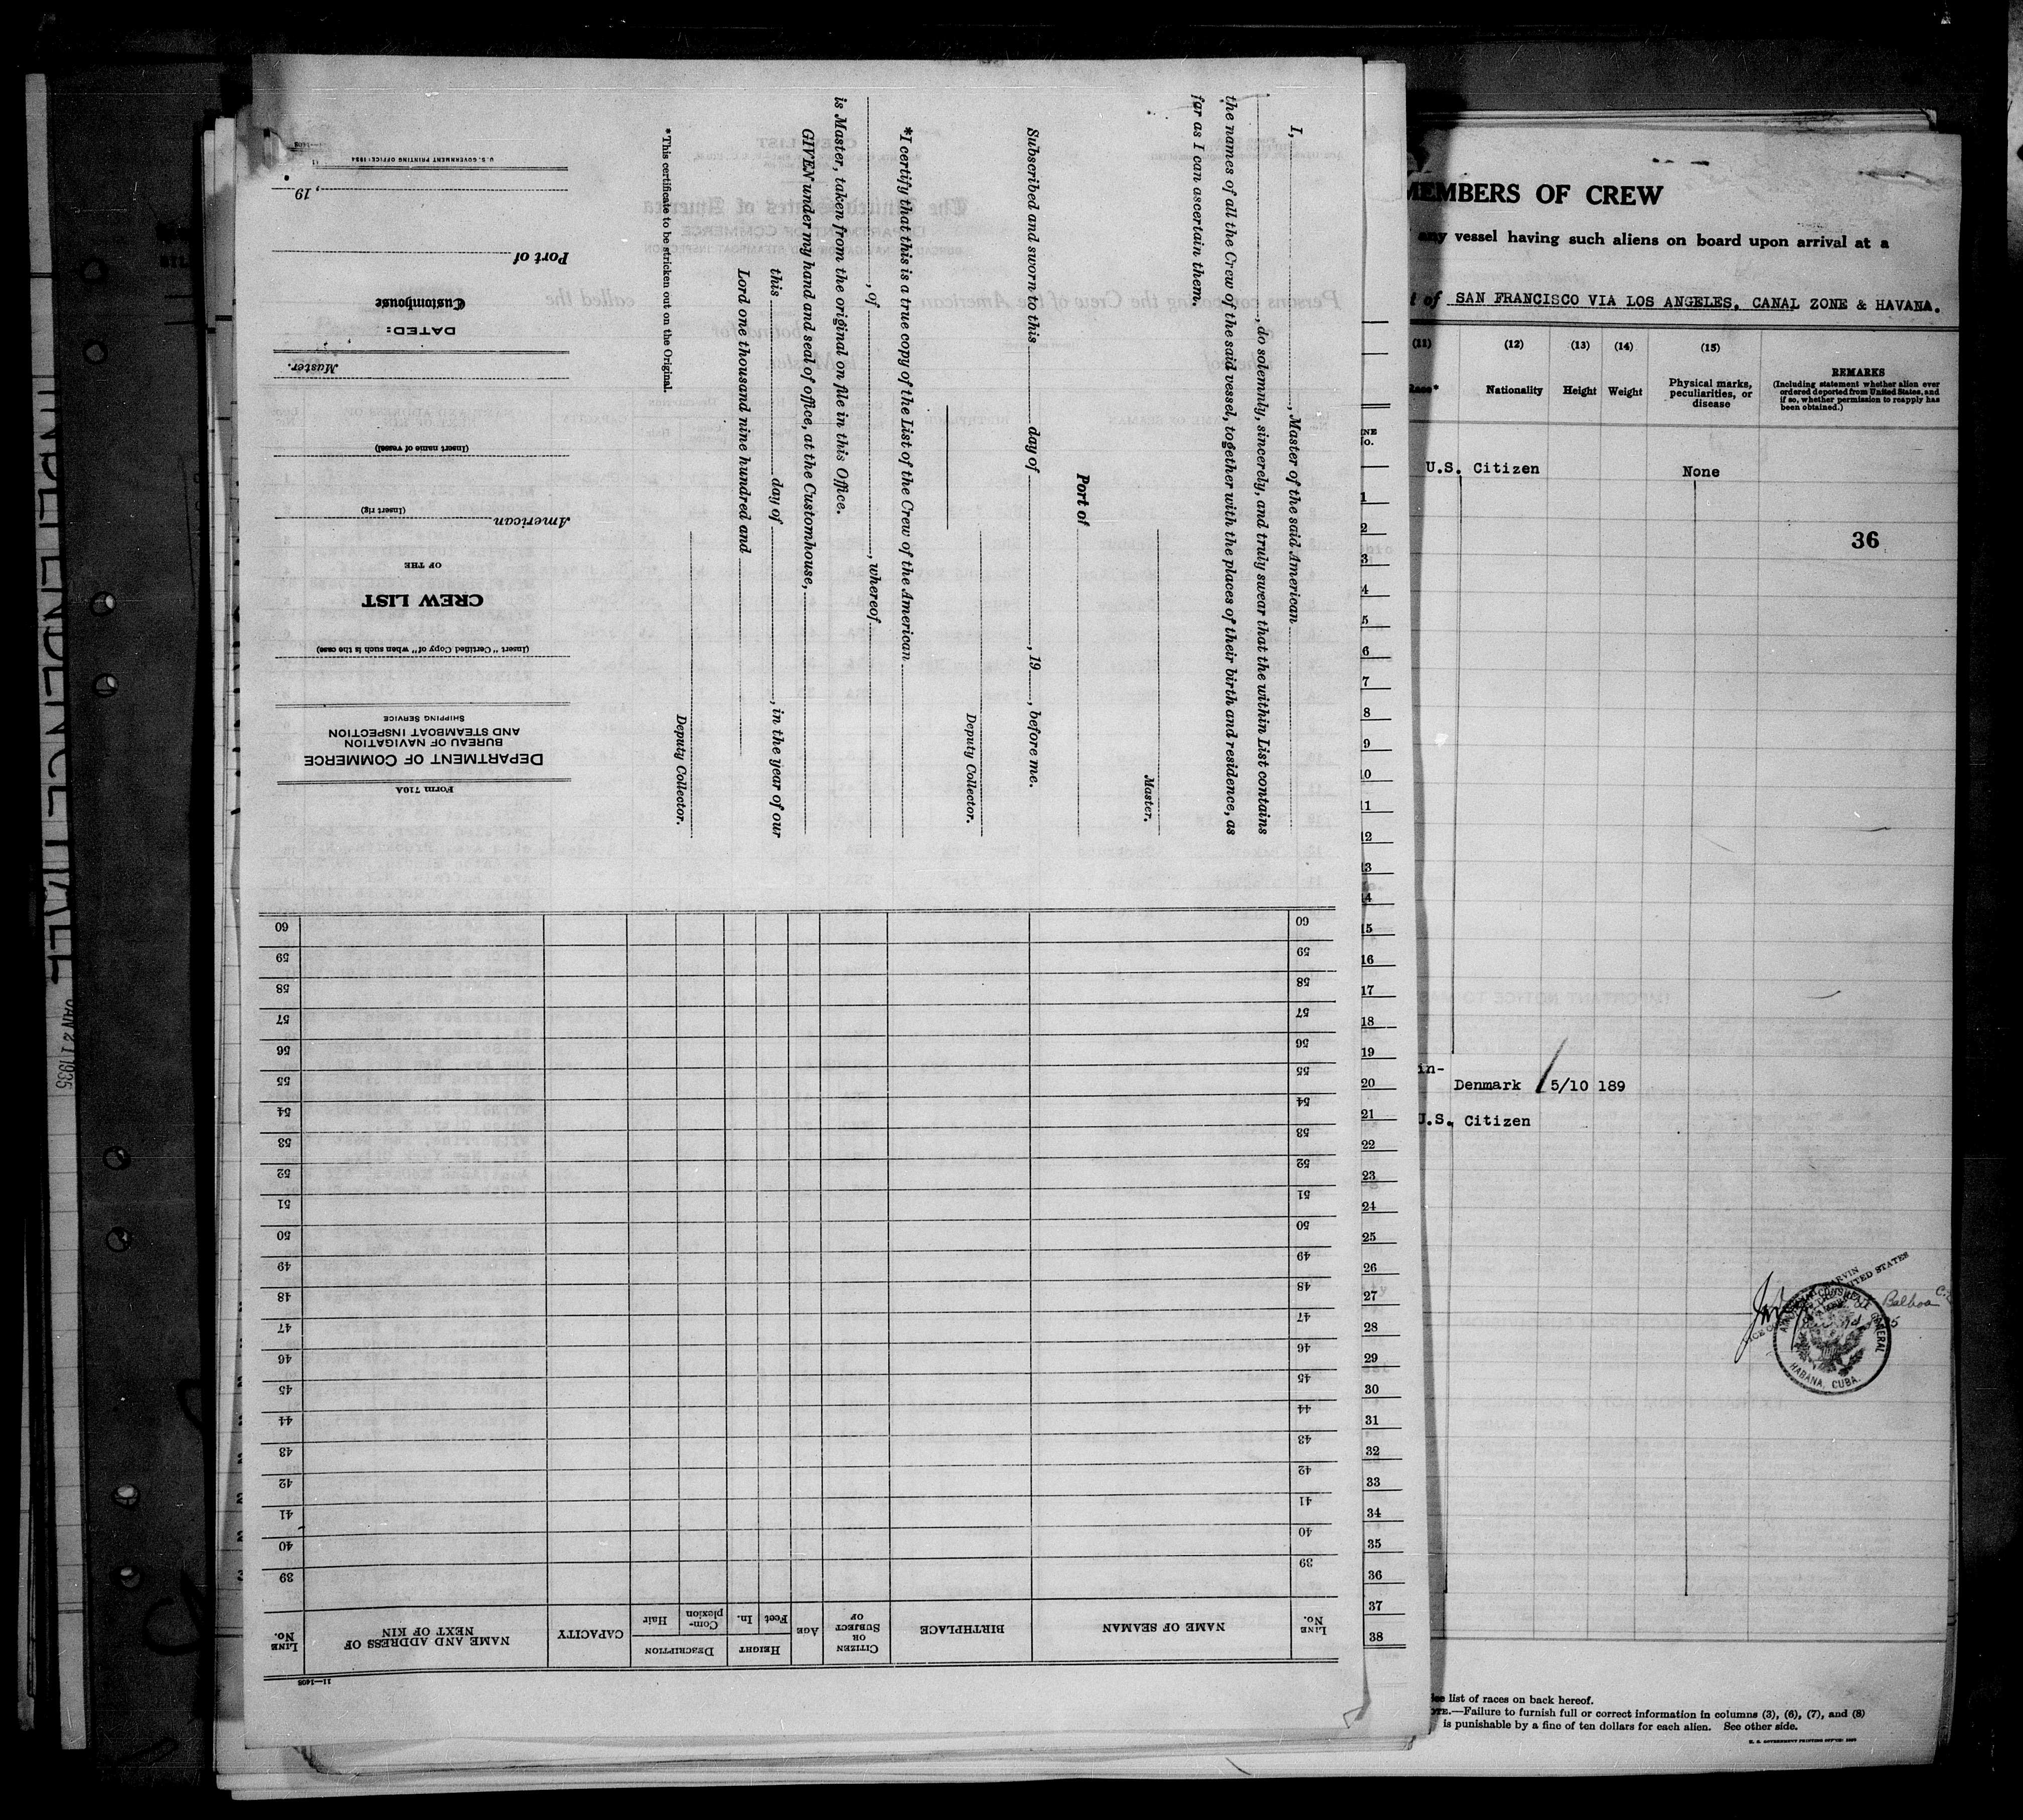 INDEPENDENCE HALL JAN 21 1935
I, , Master of the said American
, do solemnly, sincerely, and truly swear that the within List contains
the names of all the Crew of the said vessel, together with the places of their birth and residence, as
far as I can ascertain them.
Master.
Port of
Subscribed and sworn to this day of , 19 , before me.
Deputy Collector.
*I certify that this is a true copy of the List of the Crew of the American
, of , whereof
is Master, taken from the original on file in this Office.
GIVEN under my hand and seal of office, at the Customhouse,
this day of , in the year of our
Lord one thousand nine hundred and
Deputy Collector.
*This certificate to be stricken out on the Original.
Form 710A
DEPARTMENT OF COMMERCE
BUREAU OF NAVIGATION
AND STEAMBOAT INSPECTION
SHIPPING SERVICE
(Insert "Certified Copy of" when such is the case)
CREW LIST
OF THE
American
(Insert rig)
(Insert name of vessel)
Master.
DATED:
Customhouse
Port of
, 19
U.S. GOVERNMENT PRINTING OFFICE: 1934
11—1408
LINE No. NAME OF SEAMAN BIRTHPLACE CITIZEN OR SUBJECT OF AGE HEIGHT Feet In. DESCRIPTION Complexion Hair CAPACITY NAME AND ADDRESS OF NEXT OF KIN LINE No.
39 39
40 40
41 41
42 42
43 43
44 44
45 45
46 46
47 47
48 48
49 49
50 50
51 51
52 52
53 53
54 54
55 55
56 56
57 57
58 58
59 59
60 60
1
2
3
4
5
6
7
8
9
10
11
12
13
14
15
16
17
18
19
20
21
22
23
24
25
26
27
28
29
30
31
32
33
34
35
36
37
38
MEMBERS OF CREW
any vessel having such aliens on board upon arrival at a
of SAN FRANCISCO VIA LOS ANGELES, CANAL ZONE & HAVANA.
(11) (12) (13) (14) (15)
Race* Nationality Height Weight Physical marks, peculiarities, or disease
REMARKS
(Including statement whether alien ever
ordered deported from United States, and
if so, whether permission to reapply has
been obtained.)
U.S. Citizen None
36
Denmark 5/10 189
U.S. Citizen
UNITED STATES
Balboa
HABANA, CUBA.
See list of races on back hereof.
NOTE.—Failure to furnish full or correct information in columns (3), (6), (7), and (8)
is punishable by a fine of ten dollars for each alien. See other side.